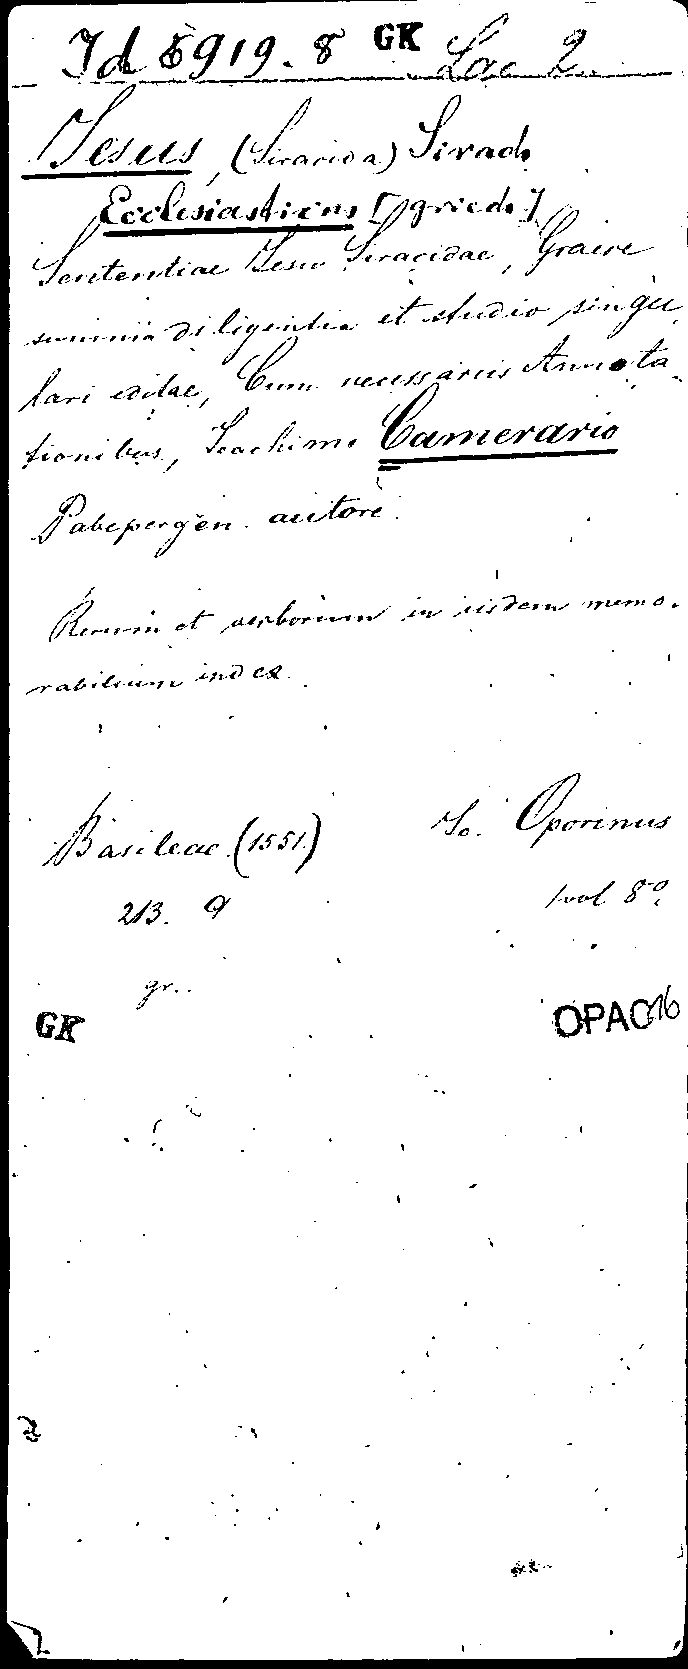 Id 8919.8 GK Loc 2.
Jesus, (Siracida) Sirach
Ecclesiasticus [griech.]
Sententiae Jesu Siracidae, Graece
summa diligentia et studio singu-
lari editae, Cum necessariis Annota-
tionibus, Joachimo Camerario
Pabepergen. autore.
Rerum et verborum in iisdem memo-
rabilium index.
Basileae (1551.) Jo. Oporinus
213. 9 1 vol 8°.
gr.
GK OPAC